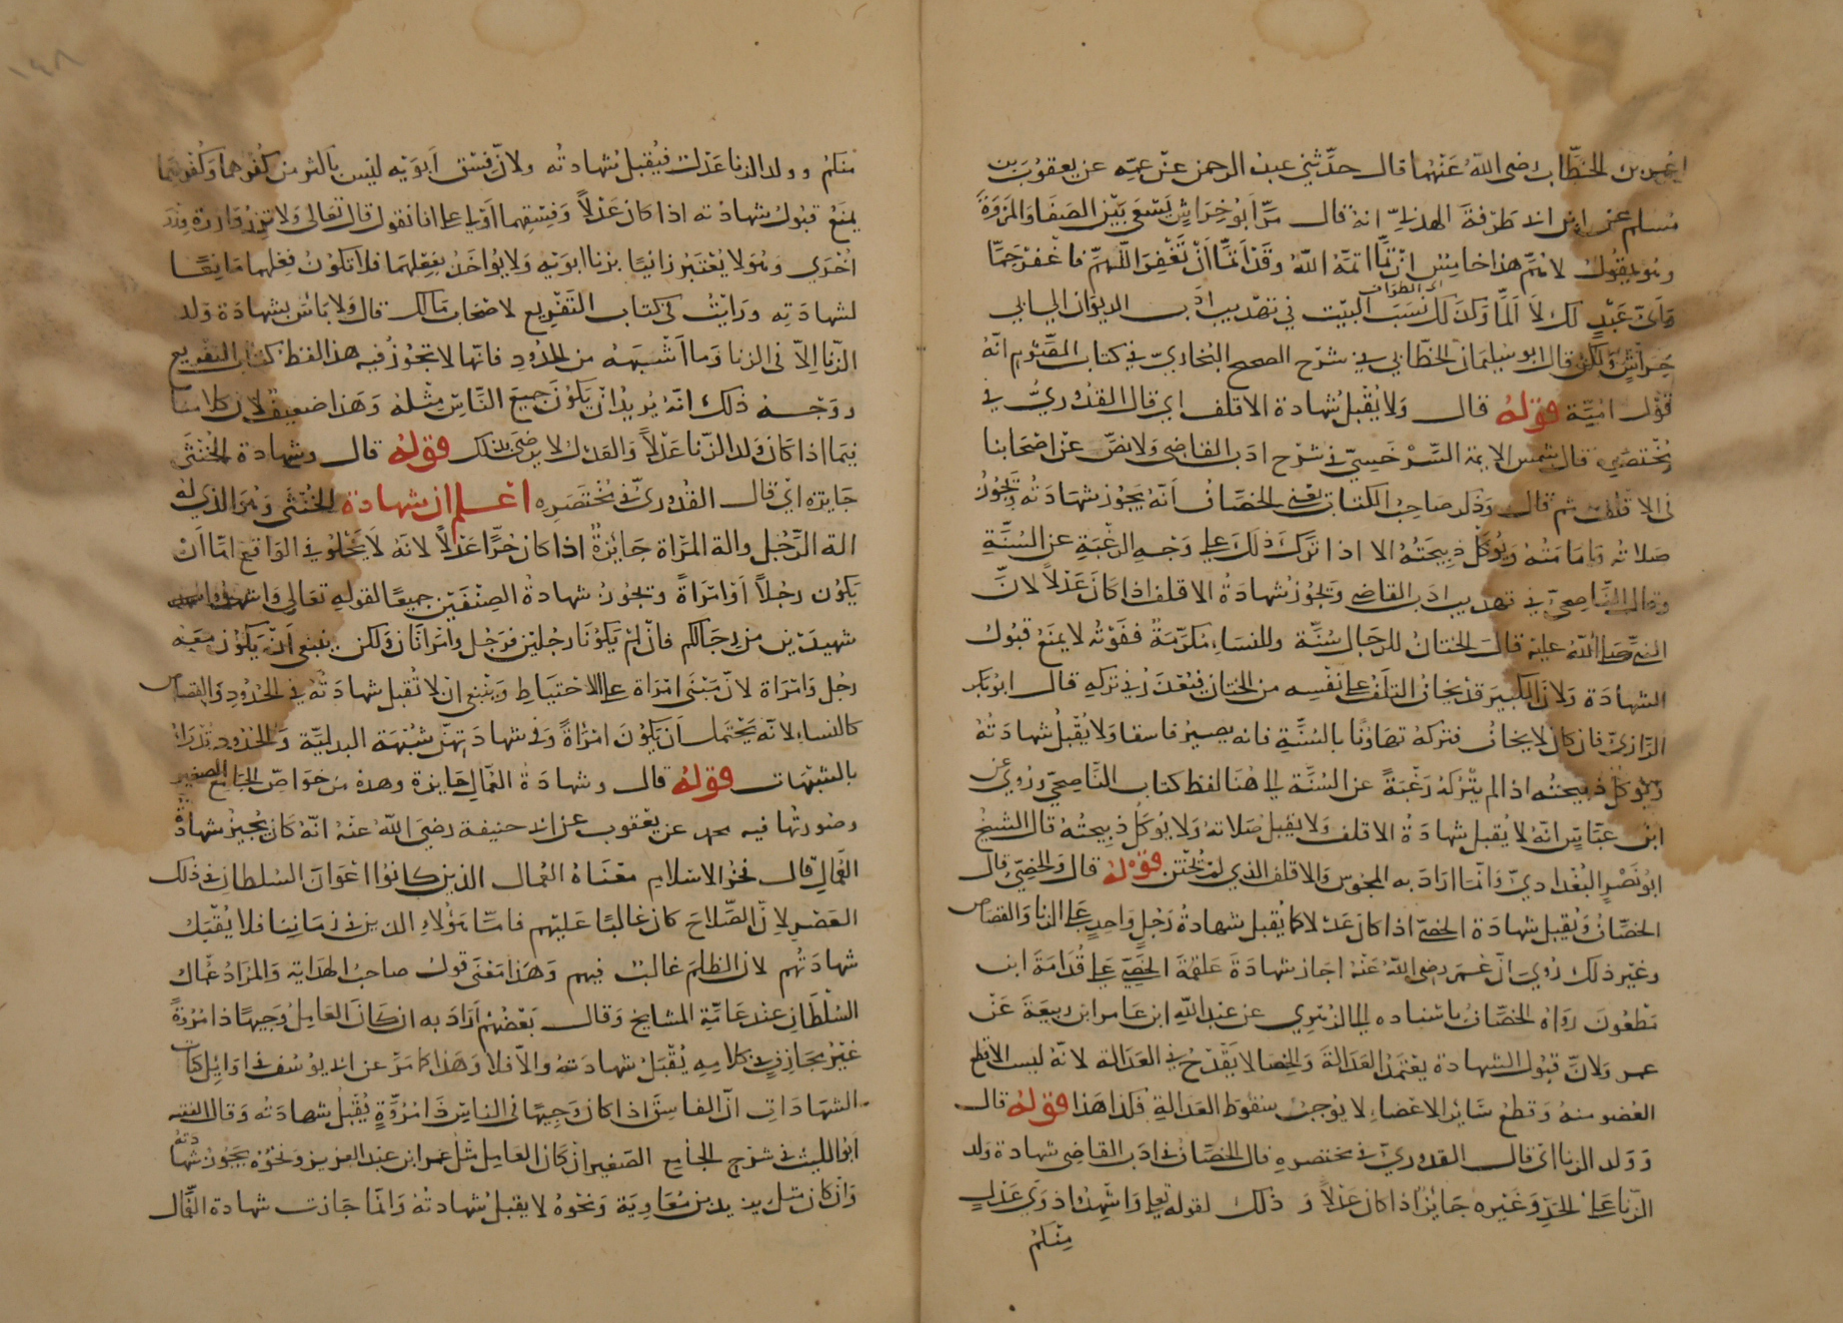 عمر بن الخطاب رضى الله عنهما قال حدثني عبد الرحمن عن عمه عن يعقوب بن
مسلم عن ابن ابي طرفة الهذلي انه قال مر ابو خراش يسعى بين الصفا والمروة
وهو يقول لاهم هذا خامس ان تما اتمه الله وقد اتما ان تغفر اللهم فاغفر جما
اى الطواف
واي عبد لك لا الما وكذلك نسب البيت في تهذيب ادب الديوان الى ابى
خراش ولكن قال ابو سليمان الخطابي في شرح الصحيح البخاري في كتاب المقسوم انه
قول امية قوله قال ولا يقبل شهادة الاقلف اي قال القدوري في
مختصره قال شمس الايمة السرخسي في شرح ادب القاضى ولا نص عن اصحابنا
فى الاقلف ثم قال وذكر صاحب الكتاب يعنى الخصاف انه يجوز شهادته وتجوز
صلاته وامامته ويؤكل ذبيحته الا اذا ترك ذلك على وجه الرغبة عن السنة
وقال الناصحي في تهذيب ادب القاضى وتجوز شهادة الاقلف اذا كان عدلا لان
النبي صلى الله عليه قال الختان للرجال سنة وللنساء مكرمة ففوته لا يمنع قبول
الشهادة ولان الكبير قد يخاف التلف على نفسه من الختان فيعذر في تركه قال ابو بكر
الرازي فان كان لا يخاف فتركه تهاونا بالسنة فانه يصير فاسقا ولا يقبل شهادته
ويؤكل ذبيحته اذا لم يتركه رغبة عن السنة الى هنا لفظ كتاب الناصحي وروي عن
ابن عباس انه لا يقبل شهادة الاقلف ولا يقبل صلاته ولا يوكل ذبيحته قال الشيخ
ابو نصر البغدادي وانما اراد به المجوس والاقلف الذي لم يختتن قوله قال والخصي قال
الخصاف ويقبل شهادة الخصي اذا كان عدلا كما يقبل شهادة رجل واحد على الزنا والقصاص
وغير ذلك روي ان عمر رضى الله عنه اجاز شهادة علقمة الخصي على قدامة ابن
مظعون رواه الخصاف باسناده الى الزهري عن عبد الله ابن عامر ابن ربيعة عن
عمر ولان قبول الشهادة يعتمد العدالة والخصا لا يقدح في العدالة لانه ليس الا قطع
العضو منه وقطع سائر الاعضاء لا يوجب سقوط العدالة فكذا هذا قوله قال
وولد الزنا اي قال القدوري في مختصره قال الخصاف في ادب القاضى شهادة ولد
الزنا على الحد وغيره جايز اذا كان عدلا و ذلك لقوله تعالى واشهدوا ذوي عدل
منكم
منكم وولد الزنا عدل فيقبل شهادته ولان فسق ابويه ليس باكثر من كفرهما وكفرهما
يمنع قبول شهادته اذا كان عدلا وفسقهما اولى على انا نقول قال تعالى ولا تزر وازرة وزر
اخرى وهو لا يعتبر زانيا بزنا ابويه ولا يؤاخذ بفعلهما فلا تكون فعلهما مانعا
لشهادته ورايت في كتاب التفريع لاصحاب مالك قال ولا باس بشهادة ولد
الزنا الا فى الزنا وما اشبهه من الحدود فانها لا تجوز فيه هذا لفظ كتاب التفريع
ووجه ذلك انه يريد ان يكون جميع الناس مثله وهذا ضعيف لان كلامنا
فيما اذا كان ولد الزنا عدلا والعدل لا يرضى بذلك قوله قال وشهادة الخنثى
جايزة اي قال القدوري في مختصره اعلم ان شهادة الخنثى وهو الذي له
الة الرجل والة المراة جايزة اذا كان حرا عدلا لانه لا يخلو في الواقع اما ان
يكون رجلا او امراة وتجوز شهادة الصنفين جميعا لقوله تعالى واستشهدوا
شهيدين من رجالكم فان لم يكونا رجلين فرجل وامراتان ولكن ينبغى انه يكون معه
رجل وامراة لان مبنى امراة على الاحتياط وينبغى ان لا تقبل شهادته في الحدود والقصاص
كالنساء لانه يحتمل ان يكون امراة وفى شهادتهن شبهة البدلية والحدود تدرا
بالشبهات قوله قال وشهادة العمال جايزة وهذه من خواص الجامع الصغير
وصورتها فيه محمد عن يعقوب عن ابى حنيفة رضى الله عنه انه كان يجيز شهادة
العمال قال فخر الاسلام معناه العمال الذين كانوا اعوان السلطان فى ذلك
العصر لان الصلاح كان غالبا عليهم فاما هؤلاء الذين فى زماننا فلا يقبل
شهادتهم لان الظلم غالب فيهم وهذا معنى قول صاحب الهداية والمراد عمال
السلطان عند عامة المشايخ وقال بعضهم اراد به ان كان العامل وجيها ذا مروة
غير مجازف فى كلامه يقبل شهادته والا فلا وهذا كما مر عن ابى يوسف فى اوائل كتاب
الشهادات ان الفاسق اذا كان وجيها فى الناس ذا مروة يقبل شهادته وقال الفقيه
ابو الليث فى شرح الجامع الصغير ان كان العامل مثل عمر ابن عبد العزيز ونحوه يجوز شهادته
وان كان مثل يزيد بن معاوية ونحوه لا يقبل شهادته وانما جازت شهادة العمال